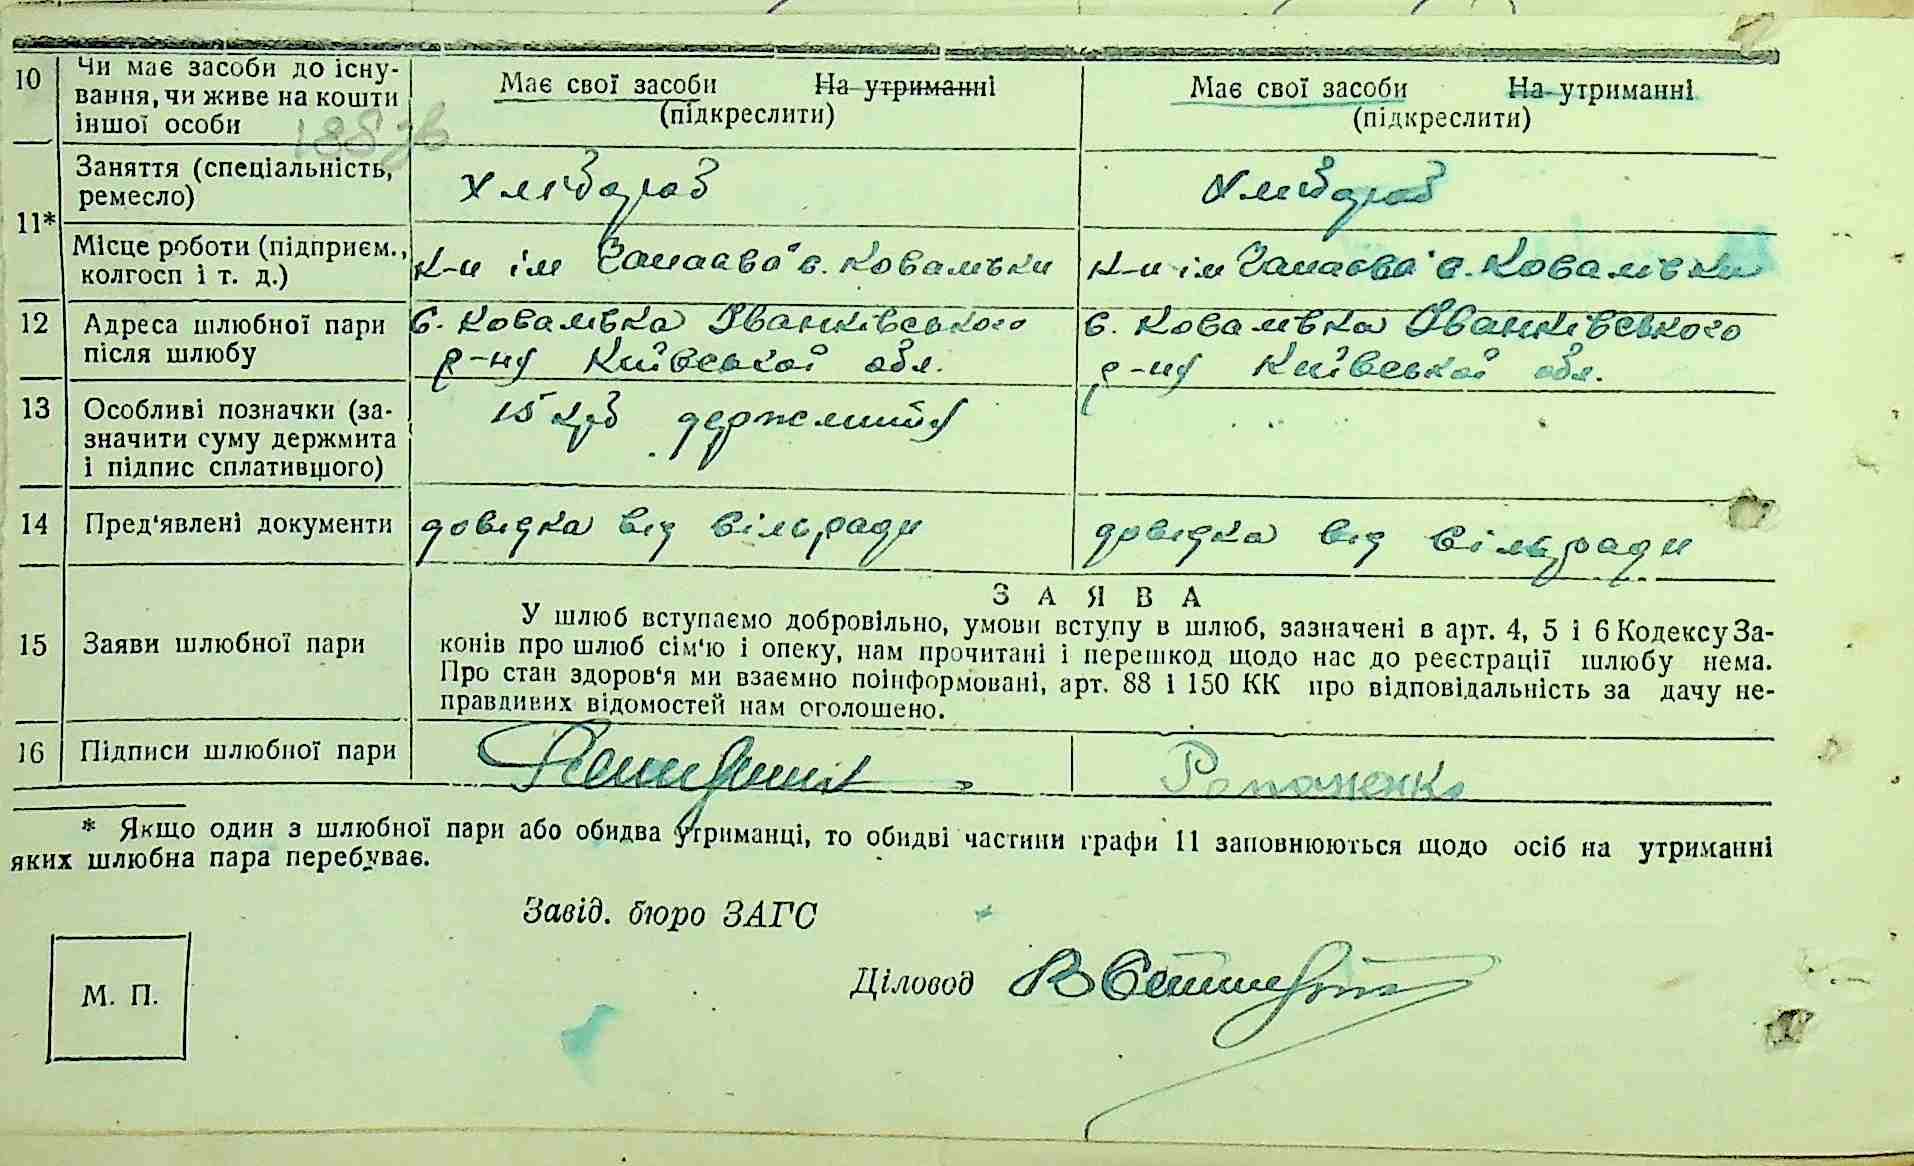 10 Чи має засоби до існу-
вання, чи живе на кошти
іншої особи
188 зв
Має свої засоби На утриманні
(підкреслити)
Має свої засоби На утриманні
(підкреслити)
11* Заняття (спеціальність,
ремесло)
Хлібороб
Хлібороб
Місце роботи (підприєм.,
колгосп і т. д.)
к-п ім Чапаєва с. Ковалівки
к-п ім Чапаєва с. Ковалівки
12 Адреса шлюбної пари
після шлюбу
с. Ковалівка Іванківського
р-ну Київської обл.
с. Ковалівка Іванківського
р-ну Київської обл.
13 Особливі позначки (за-
значити суму держмита
і підпис сплатившого)
15 крб держмита
14 Пред'явлені документи
довідка від сільради
довідка від сільради
15 Заяви шлюбної пари
ЗАЯВА
У шлюб вступаємо добровільно, умови вступу в шлюб, зазначені в арт. 4, 5 і 6 Кодексу За-
конів про шлюб сім'ю і опеку, нам прочитані і перешкод щодо нас до реєстрації шлюбу нема.
Про стан здоров'я ми взаємно поінформовані, арт. 88 і 150 КК про відповідальність за дачу не-
правдивих відомостей нам оголошено.
16 Підписи шлюбної пари
* Якщо один з шлюбної пари або обидва утриманці, то обидві частини графи 11 заповнюються щодо осіб на утриманні
яких шлюбна пара перебуває.
Завід. бюро ЗАГС
Діловод
М. П.